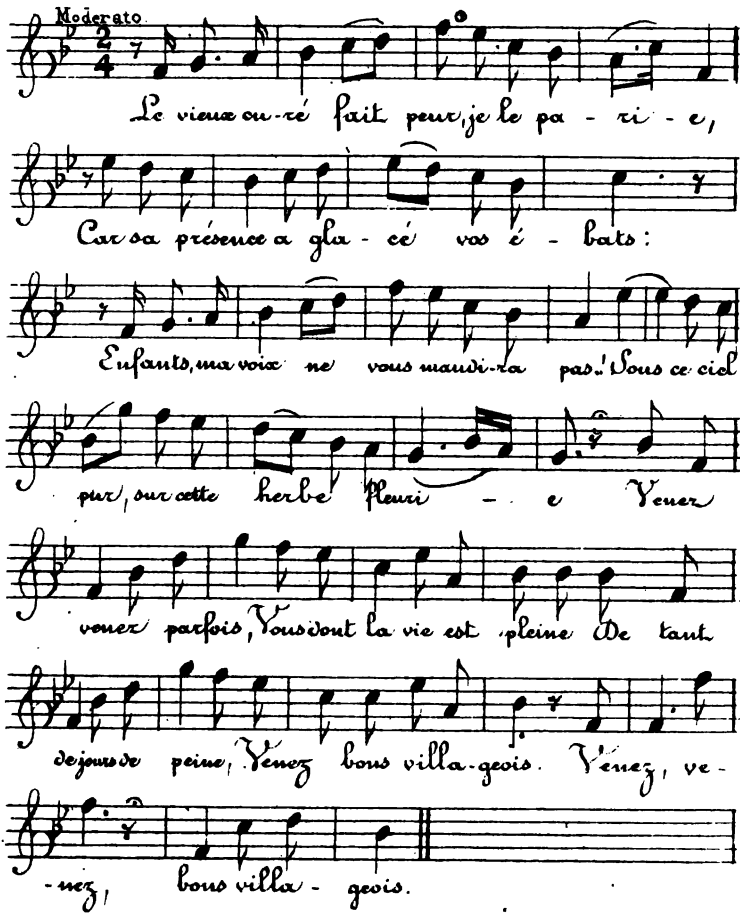 Moderato
2
4
Le vieux cu-ré fait peur, je le pa - ri - e,
Car sa présence a gla - cé vos é - bats :
Enfants, ma voix ne vous maudi-ra pas..! Sous ce ciel
pur, sur cette herbe fleuri - - e Venez
venez parfois, Vous dont la vie est pleine De tant
de jours de peine, Venez bons villa-geois. Venez, ve-
-nez, bons villa - geois.